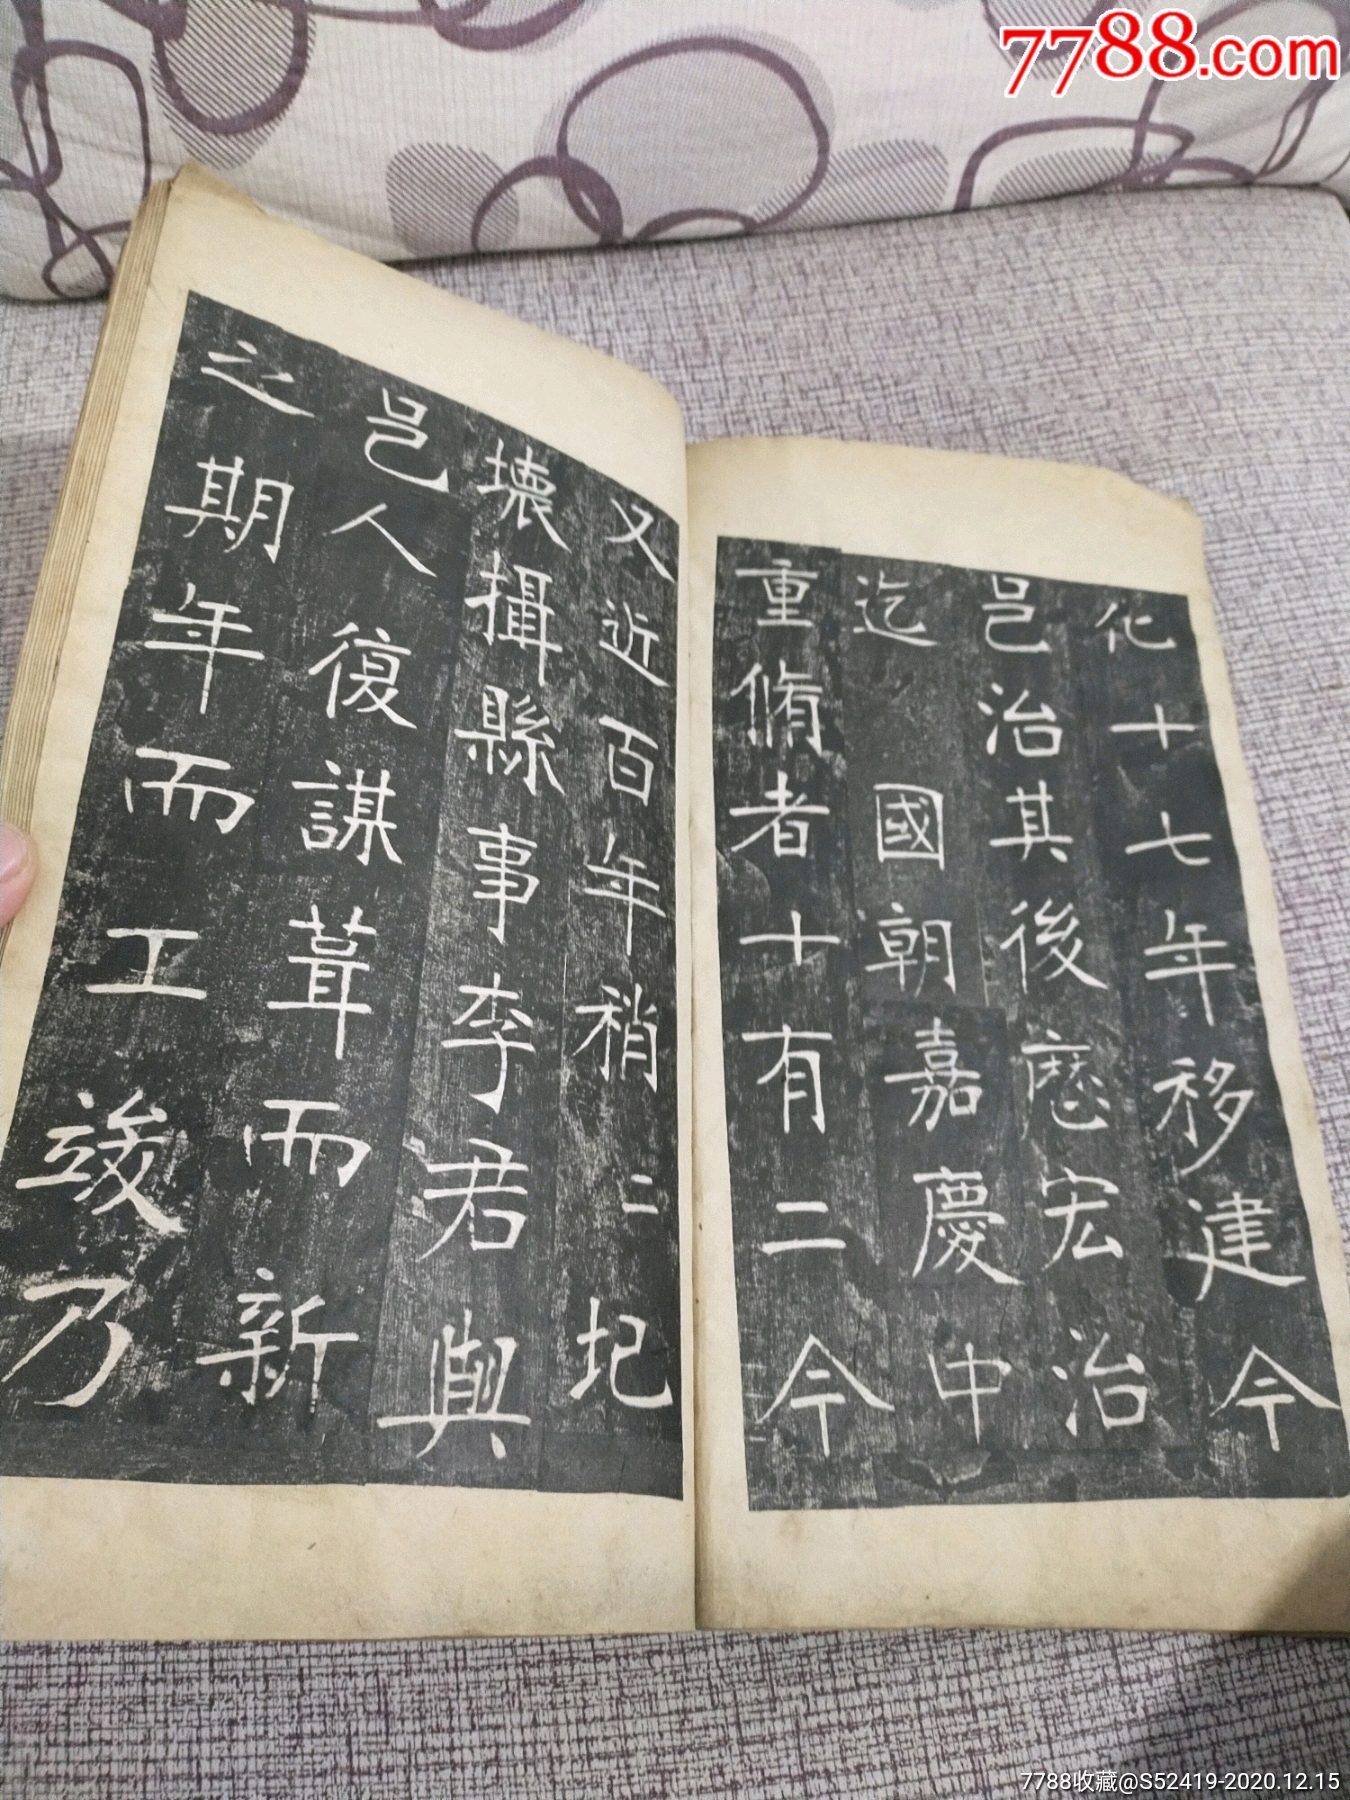 7788.com
化十七年移建今
邑治其後厯宏治
迄國朝嘉慶中
重脩者十有二今
又近百年稍二圮
壞攝縣事李君與
邑人復謀葺而新
之期年而工竣乃
7788收藏@S52419-2020.12.15